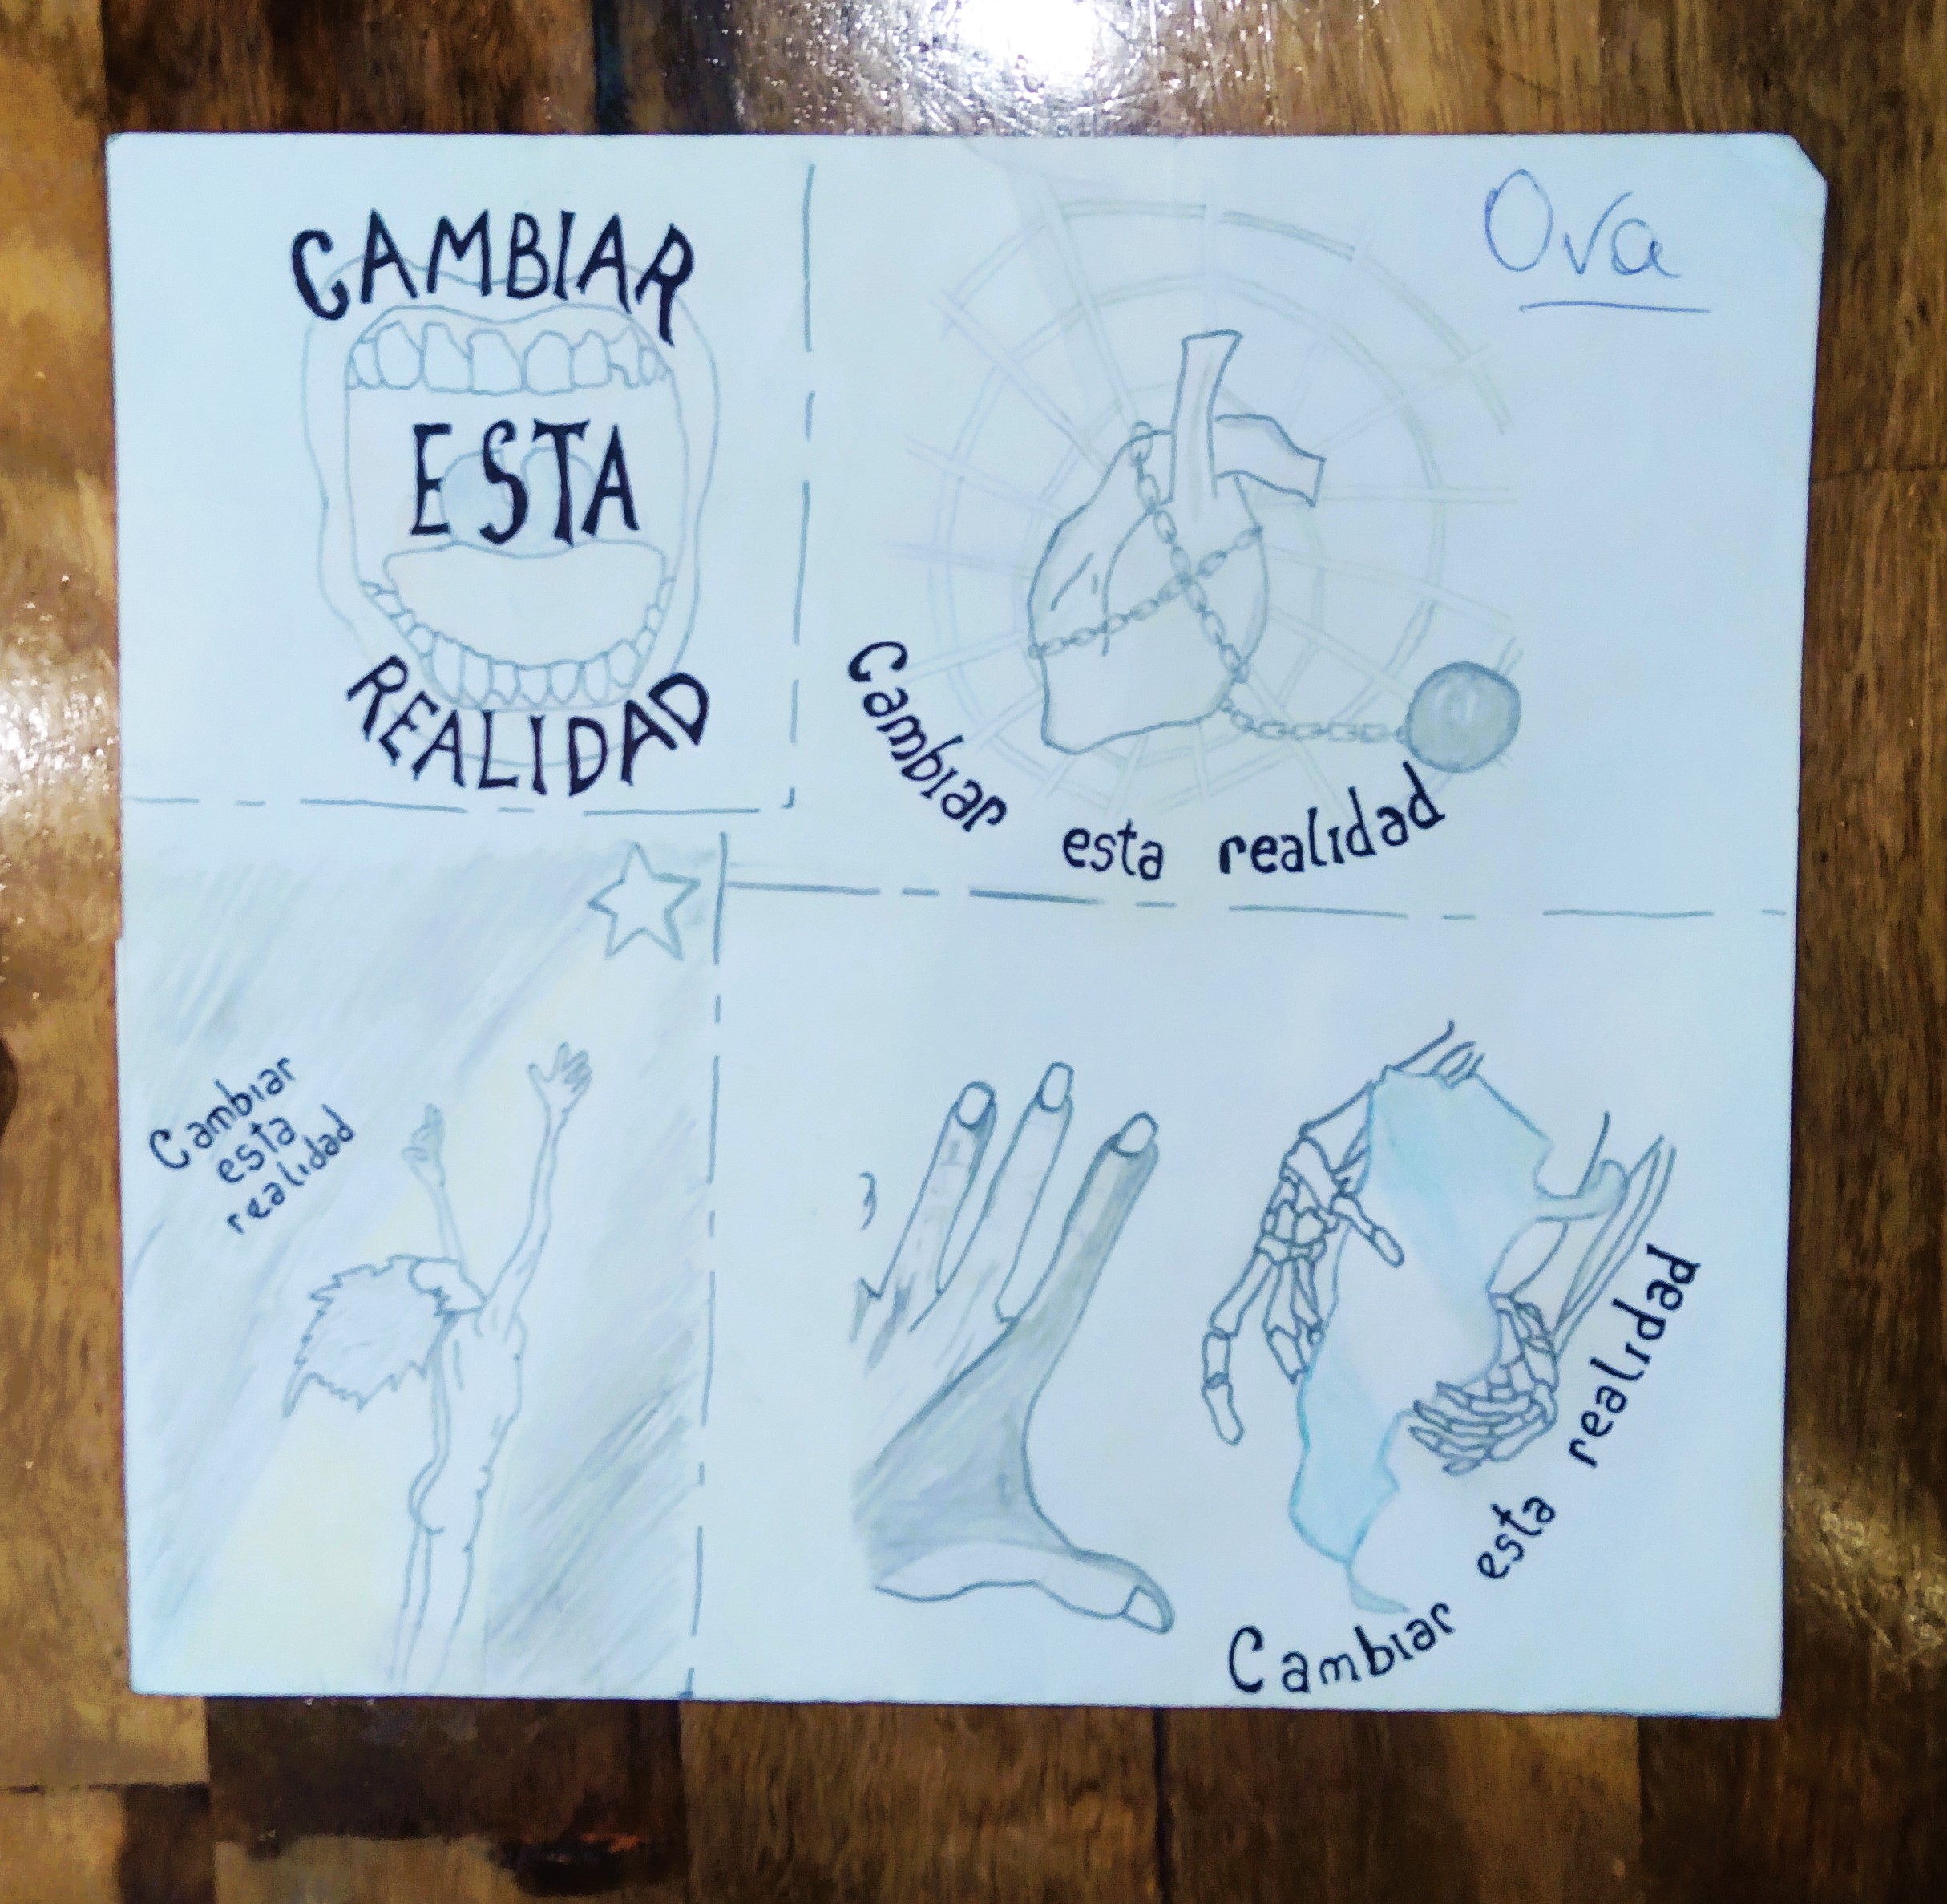 CAMBIAR
ESTA
REALIDAD
Ova
Cambiar esta realidad
Cambiar
esta
realidad
Cambiar esta realidad